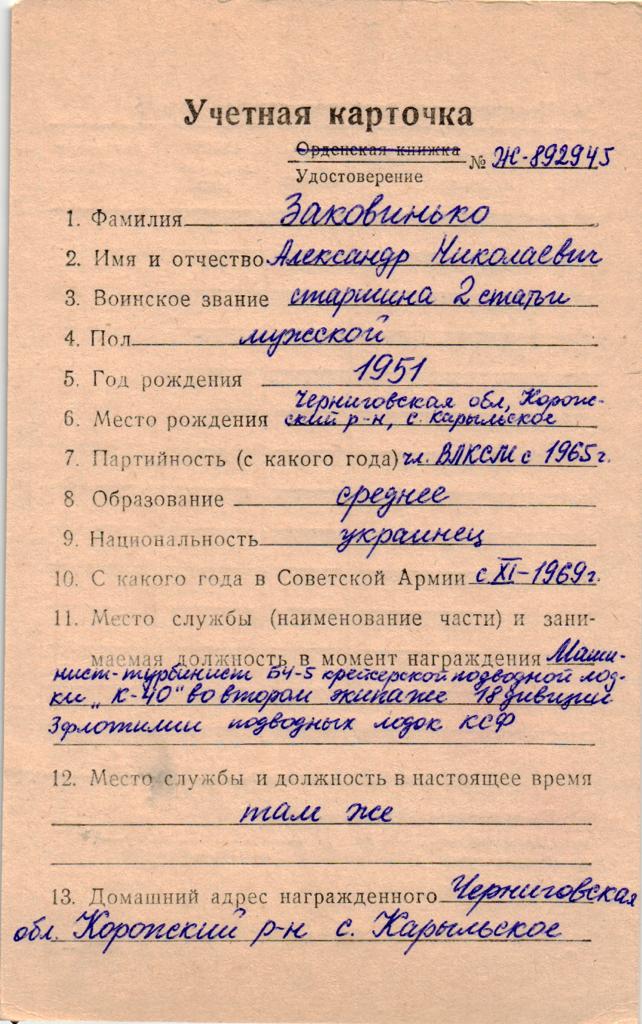 Учетная карточка
Орденская книжка № Ж-892945
Удостоверение
1. Фамилия Заковинько
2. Имя и отчество Александр Николаевич
3. Воинское звание старшина 2 статьи
4. Пол мужской
5. Год рождения 1951
Черниговская обл, Коропс-
6. Место рождения ский р-н, с. Карыльское
7. Партийность (с какого года) чл. ВЛКСМ с 1965г.
8 Образование среднее
9. Национальность украинец
10. С какого года в Советской Армии с XI-1969г.
11. Место службы (наименование части) и зани-
маемая должность в момент награждения Маши-
нист-турбинист БЧ-5 крейсерской подводной лод-
ки „К-40" во втором экипаже 18 дивизии
3 флотилии подводных лодок КСФ
12. Место службы и должность в настоящее время
там же
13. Домашний адрес награжденного Черниговская
обл. Коропский р-н с. Карыльское